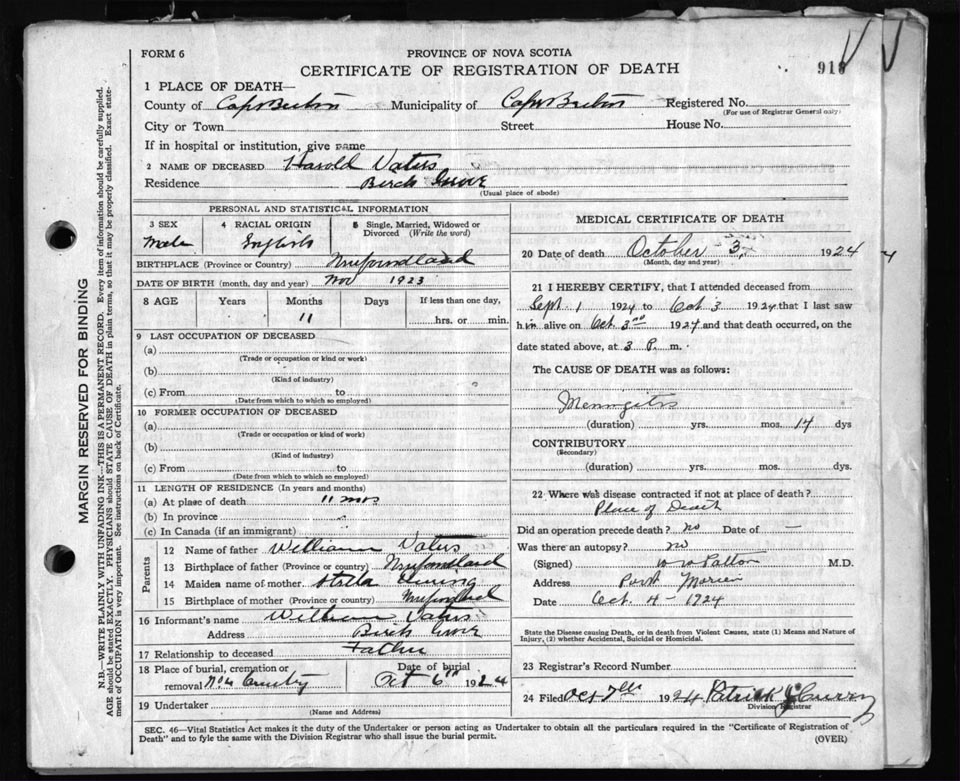 FORM 6
PROVINCE OF NOVA SCOTIA
CERTIFICATE OF REGISTRATION OF DEATH
918
1 PLACE OF DEATH—
County of Cape Breton Municipality of Cape Breton Registered No.
(For use of Registrar General only)
City or Town Street House No.
If in hospital or institution, give name
2 NAME OF DECEASED Harold Vaters
Residence Birch Grove
(Usual place of abode)
PERSONAL AND STATISTICAL INFORMATION
3 SEX 4 RACIAL ORIGIN 5 Single, Married, Widowed or Divorced (Write the word)
Male English
BIRTHPLACE (Province or Country) Newfoundland
DATE OF BIRTH (month, day and year) Nov 1923
8 AGE Years Months Days If less than one day,
11 hrs. or min.
9 LAST OCCUPATION OF DECEASED
(a)
(Trade or occupation or kind of work)
(b)
(Kind of industry)
(c) From to
(Date from which to which so employed)
10 FORMER OCCUPATION OF DECEASED
(a)
(Trade or occupation or kind of work)
(b)
(Kind of industry)
(c) From to
(Date from which to which so employed)
11 LENGTH OF RESIDENCE (In years and months)
(a) At place of death 11 mos
(b) In province
(c) In Canada (if an immigrant)
Parents
12 Name of father William Vaters
13 Birthplace of father (Province or country) Newfoundland
14 Maiden name of mother Stella
15 Birthplace of mother (Province or country) Newfoundland
16 Informant's name William Vaters
Address Birch Grove
17 Relationship to deceased Father
18 Place of burial, cremation or removal Date of burial
Oct 6th 1924
19 Undertaker
(Name and Address)
MEDICAL CERTIFICATE OF DEATH
20 Date of death October 3, 1924
(Month, day and year)
21 I HEREBY CERTIFY, that I attended deceased from
Sept. 1 1924 to Oct 3 1924 that I last saw
him alive on Oct 3rd 1924 and that death occurred, on the
date stated above, at 3 P. m.
The CAUSE OF DEATH was as follows:
Meningitis
(duration) yrs. mos. 14 dys
CONTRIBUTORY
(Secondary)
(duration) yrs. mos. dys.
22 Where was disease contracted if not at place of death?
Place of Death
Did an operation precede death? no Date of —
Was there an autopsy? no
(Signed) Patton M.D.
Address Port Morien
Date Oct. 4 - 1924
State the Disease causing Death, or in death from Violent Causes, state (1) Means and Nature of
Injury, (2) whether Accidental, Suicidal or Homicidal.
23 Registrar's Record Number
24 Filed Oct 7th 1924 Patrick J Curry
Division Registrar
SEC. 46—Vital Statistics Act makes it the duty of the Undertaker or person acting as Undertaker to obtain all the particulars required in the "Certificate of Registration of
Death" and to fyle the same with the Division Registrar who shall issue the burial permit.
(OVER)
MARGIN RESERVED FOR BINDING
N.B.—WRITE PLAINLY WITH UNFADING INK—THIS IS A PERMANENT RECORD. Every item of information should be carefully supplied.
AGE should be stated EXACTLY. PHYSICIANS should STATE CAUSE OF DEATH in plain terms, so that it may be properly classified. Exact state-
ment of OCCUPATION is very important. See instructions on back of Certificate.